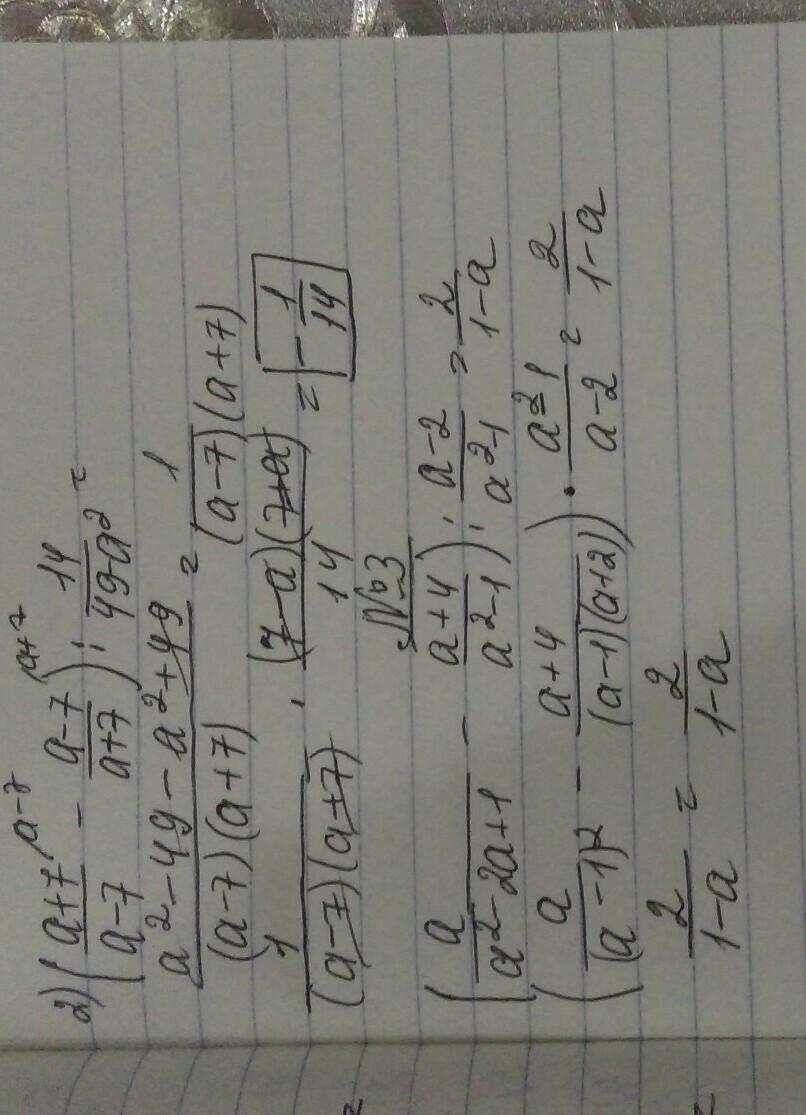 2) ((a+7)/(a-7) ^(a-7) - (a-7)/(a+7) ^(a+7)) : 14/(49-a²) =
(a²-49-a²+49)/((a-7)(a+7)) = 1/((a-7)(a+7))
1/((a-7)(a+7)) · ((7-a)(7+a))/14 = -1/14
№3
(a/(a²-2a+1) - (a+4)/(a²-1)) : (a-2)/(a²-1) = 2/(1-a)
(a/(a-1)² - (a+4)/((a-1)(a+2))) · (a²-1)/(a-2) = 2/(1-a)
2/(1-a) = 2/(1-a)